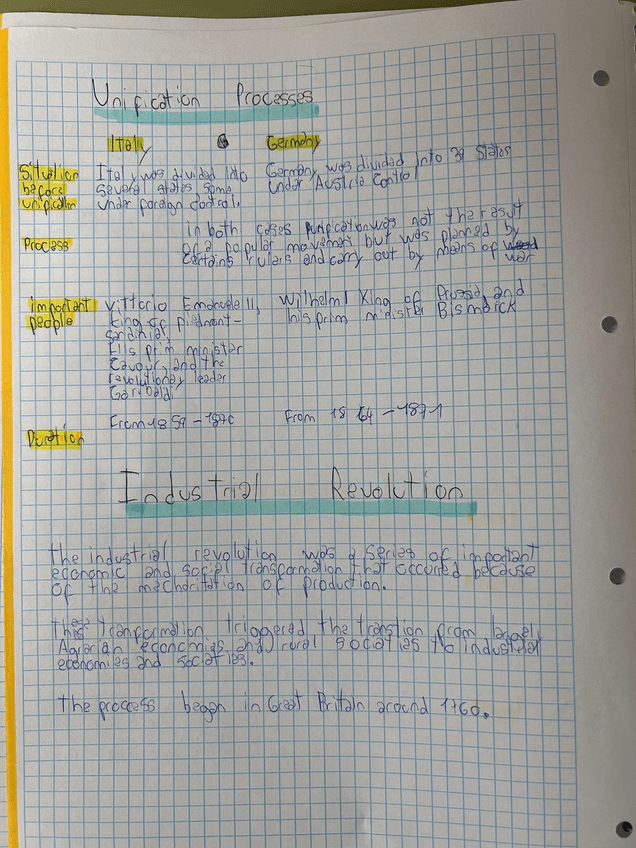 Unification Processes
Italy Germany
Situation Italy was divided into Germany was divided into 39 states
before several states some under Austria Control
unification under poreign control.
in both cases punification was not the result
Process op a popular movemens but was planned by
certains rulers and carry out by means of war
important Vittorio Emanuele II, Wilhelm I King of Prussia and
people King of Piedmont- his prim minister Bismarck
Sardinia,
Elis prim minister
Cavour, and the
revolutionary leader
Garibaldi
From 1859-1870 From 1864-1871
Duration
Industrial Revolution
The industrial revolution was a series of important
economic and social transformation that occurred because
of the mechanitation of production.
This tranformation triggered the transtion from largely
Agrarian economies and rural socities to industrial
economies and socaties.
the proccess began in Great Britain around 1760.